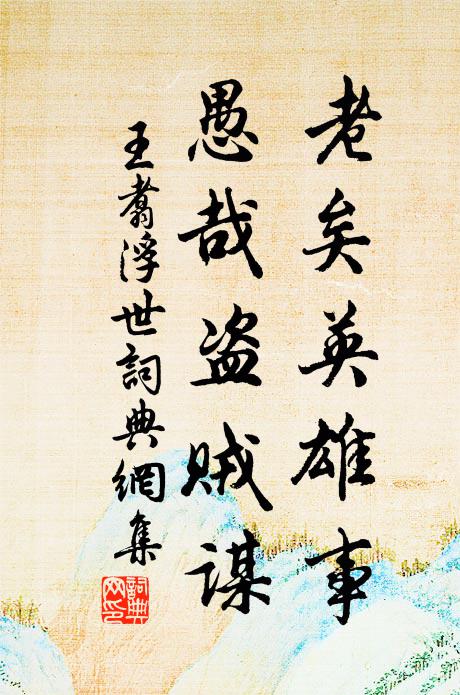 老矣英雄事
愚哉盗贼谋
王翥浮世詞典網集
詞典
网印